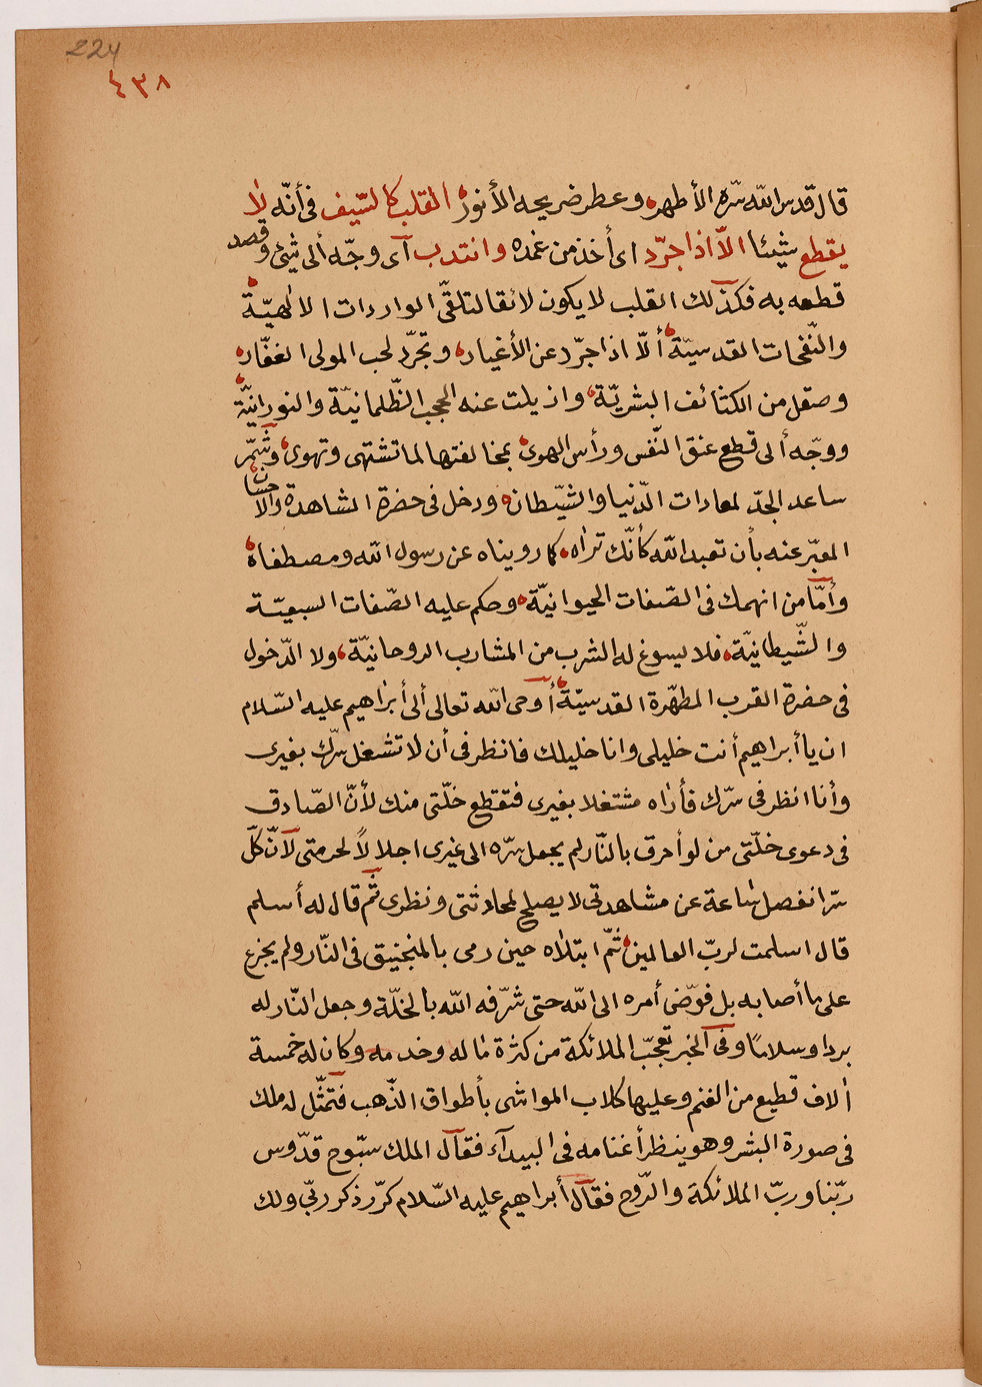 224
٤٣٨
قال قدس الله سرّه الأطهر، وعطر ضريحه الأنور، القلب كالسّيف فى أنّه لا
يقطع شيئا الاّ اذا جرّد اى أخذ من غمده وانتدب آى وجّه ألى شئ وقصد
قطعه به فكذلك القلب لا يكون لائقا لتلقّى الواردات الالهيّة،
والنّفحات القدسيّة، ألاّ اذا جرّد عن الأغيار، وتجرّد لحب المولى الغفّار،
وصقل من الكثائف البشريّة، وازيلت عنه الحجب الظّلمانيّة والنورانيّة،
ووجّه ألى قطع عنق النّفس ورأس الهوى، بمخالفتها لما تشتهى وتهوى، وشمّر
ساعد الجدّ لمعادات الدّنيا والشيّطان، ودخل فى حضرة المشاهدة والاحسان،
المعبّر عنه بأن تعبد الله كأنّك تراه، كما رويناه عن رسول الله ومصطفاه،
وأمّا من انهمك فى الصّفات الحيوانيّة، وحكم عليه الصّفات السبعيّة
والشّيطانيّة، فلا يسوغ له الشرب من المشارب الروحانيّة، ولا الدّخول
فى حضرة القرب المطهّرة القدسيّة، أوحى الله تعالى ألى أبراهيم عليه السّلام
ان يا أبراهيم أنت خليلى وانا خليلك فانظر فى أن لا تشغل سرّك بغيرى
وأنا انظر فى سرّك فأراه مشتغلا بغيرى فتقطع خلّتى منك لأنّ الصّادق
فى دعوى خلّتى من لو أحرق بالنّار لم يجعل سرّه الى غيرى اجلالاً لحرمتى لآنّ كلّ
سرّ انفصل ساعة عن مشاهدتى لا يصلح لمحادثتى ونظرى ثمّ قال له أسلم
قال اسلمت لربّ العالمين، ثمّ ابتلاه حين رمى بالمنجنيق فى النّار ولم يجزع
على ما أصابه بل فوّض أمره الى الله حتى شرّفه الله بالخلّة وجعل النّار له
بردا وسلامًا وفى الخبر تعجّب الملائكة من كثرة ماله وخدمه وكان له خمسة
ألاف قطيع من الغنم وعليها كلاب المواشى بأطواق الذّهب فتمثّل له ملك
فى صورة البشر وهو ينظر أغنامه فى البيدآء فقآل الملك سبّوح قدّوس
ربّنا وربّ الملائكة والرّوح فقآل أبراهيم عليه السّلام كرّر ذكر ربّى ولك